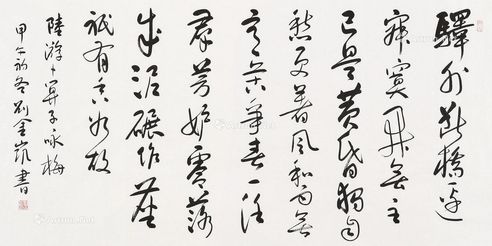 驛外斷橋邊
寂寞開無主
已是黃昏獨自
愁更著風和雨無
意苦爭春一任
羣芳妒零落
成泥碾作塵
祇有香如故
陸游卜算子咏梅
甲午初冬劉金書